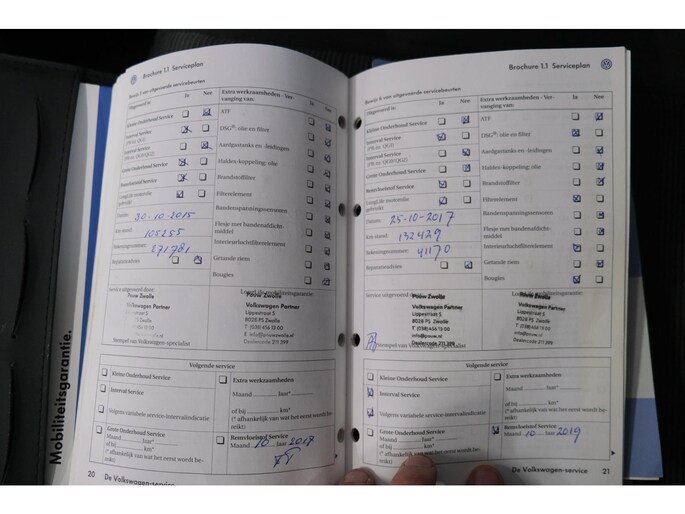 Mobiliteitsgarantie.
Brochure 1.1 Serviceplan
Bewijs 5 van uitgevoerde servicebeurten
Uitgevoerd is: Ja Nee
Extra werkzaamheden - Ver-
vanging van: Ja Nee
Kleine Onderhoud Service
ATF
Interval Service
DSG®: olie en filter
Interval Service
Aardgastanks en -leidingen
Grote Onderhoud Service
Haldex-koppeling: olie
Remvloeistof Service
Brandstoffilter
Longlife motorolie
gebruikt
Filterelement
Datum: 30-10-2015
Bandenspanningssensoren
Km-stand: 105255
Flesje met bandenafdicht-
middel
Rekeningnummer: 271781
Interieurluchtfilterelement
Reparatieadvies
Getande riem
Bougies
Service uitgevoerd door:
Pouw Zwolle
Volkswagen Partner
Lippestraat 5
8028 PS Zwolle
T (038) 456 13 00
info@pouw.nl
Dealercode 211 399
Stempel van Volkswagen-specialist
Volgende service
Kleine Onderhoud Service
Extra werkzaamheden:
Interval Service
Maand ........ Jaar*
of bij ........ km*
Volgens variabele service-intervalindicatie
(* afhankelijk van wat het eerst wordt be-
reikt)
Grote Onderhoud Service
Maand ........ Jaar*
of bij ........ km*
(* afhankelijk van wat het eerst wordt be-
reikt)
Remvloeistof Service
Maand 10 Jaar 2017
20 De Volkswagen-service
Brochure 1.1 Serviceplan
Bewijs 6 van uitgevoerde servicebeurten
Uitgevoerd is: Ja Nee
Extra werkzaamheden - Ver-
vanging van: Ja Nee
Kleine Onderhoud Service
ATF
Interval Service
DSG®: olie en filter
Interval Service
Aardgastanks en -leidingen
Grote Onderhoud Service
Haldex-koppeling: olie
Remvloeistof Service
Brandstoffilter
Longlife motorolie
gebruikt
Filterelement
Datum: 25-10-2017
Bandenspanningssensoren
Km-stand: 132429
Flesje met bandenafdicht-
middel
Rekeningnummer: 41170
Interieurluchtfilterelement
Reparatieadvies
Getande riem
Bougies
Service uitgevoerd door:
Pouw Zwolle
Volkswagen Partner
Lippestraat 5
8028 PS Zwolle
T (038) 456 13 00
info@pouw.nl
Dealercode 211 399
Stempel van Volkswagen-specialist
Volgende service
Kleine Onderhoud Service
Extra werkzaamheden:
Interval Service
Maand ........ Jaar*
of bij ........ km*
Volgens variabele service-intervalindicatie
(* afhankelijk van wat het eerst wordt be-
reikt)
Grote Onderhoud Service
Maand ........ Jaar*
of bij ........ km*
(* afhankelijk van wat het eerst wordt be-
reikt)
Remvloeistof Service
Maand 10 Jaar 2019
De Volkswagen-service 21